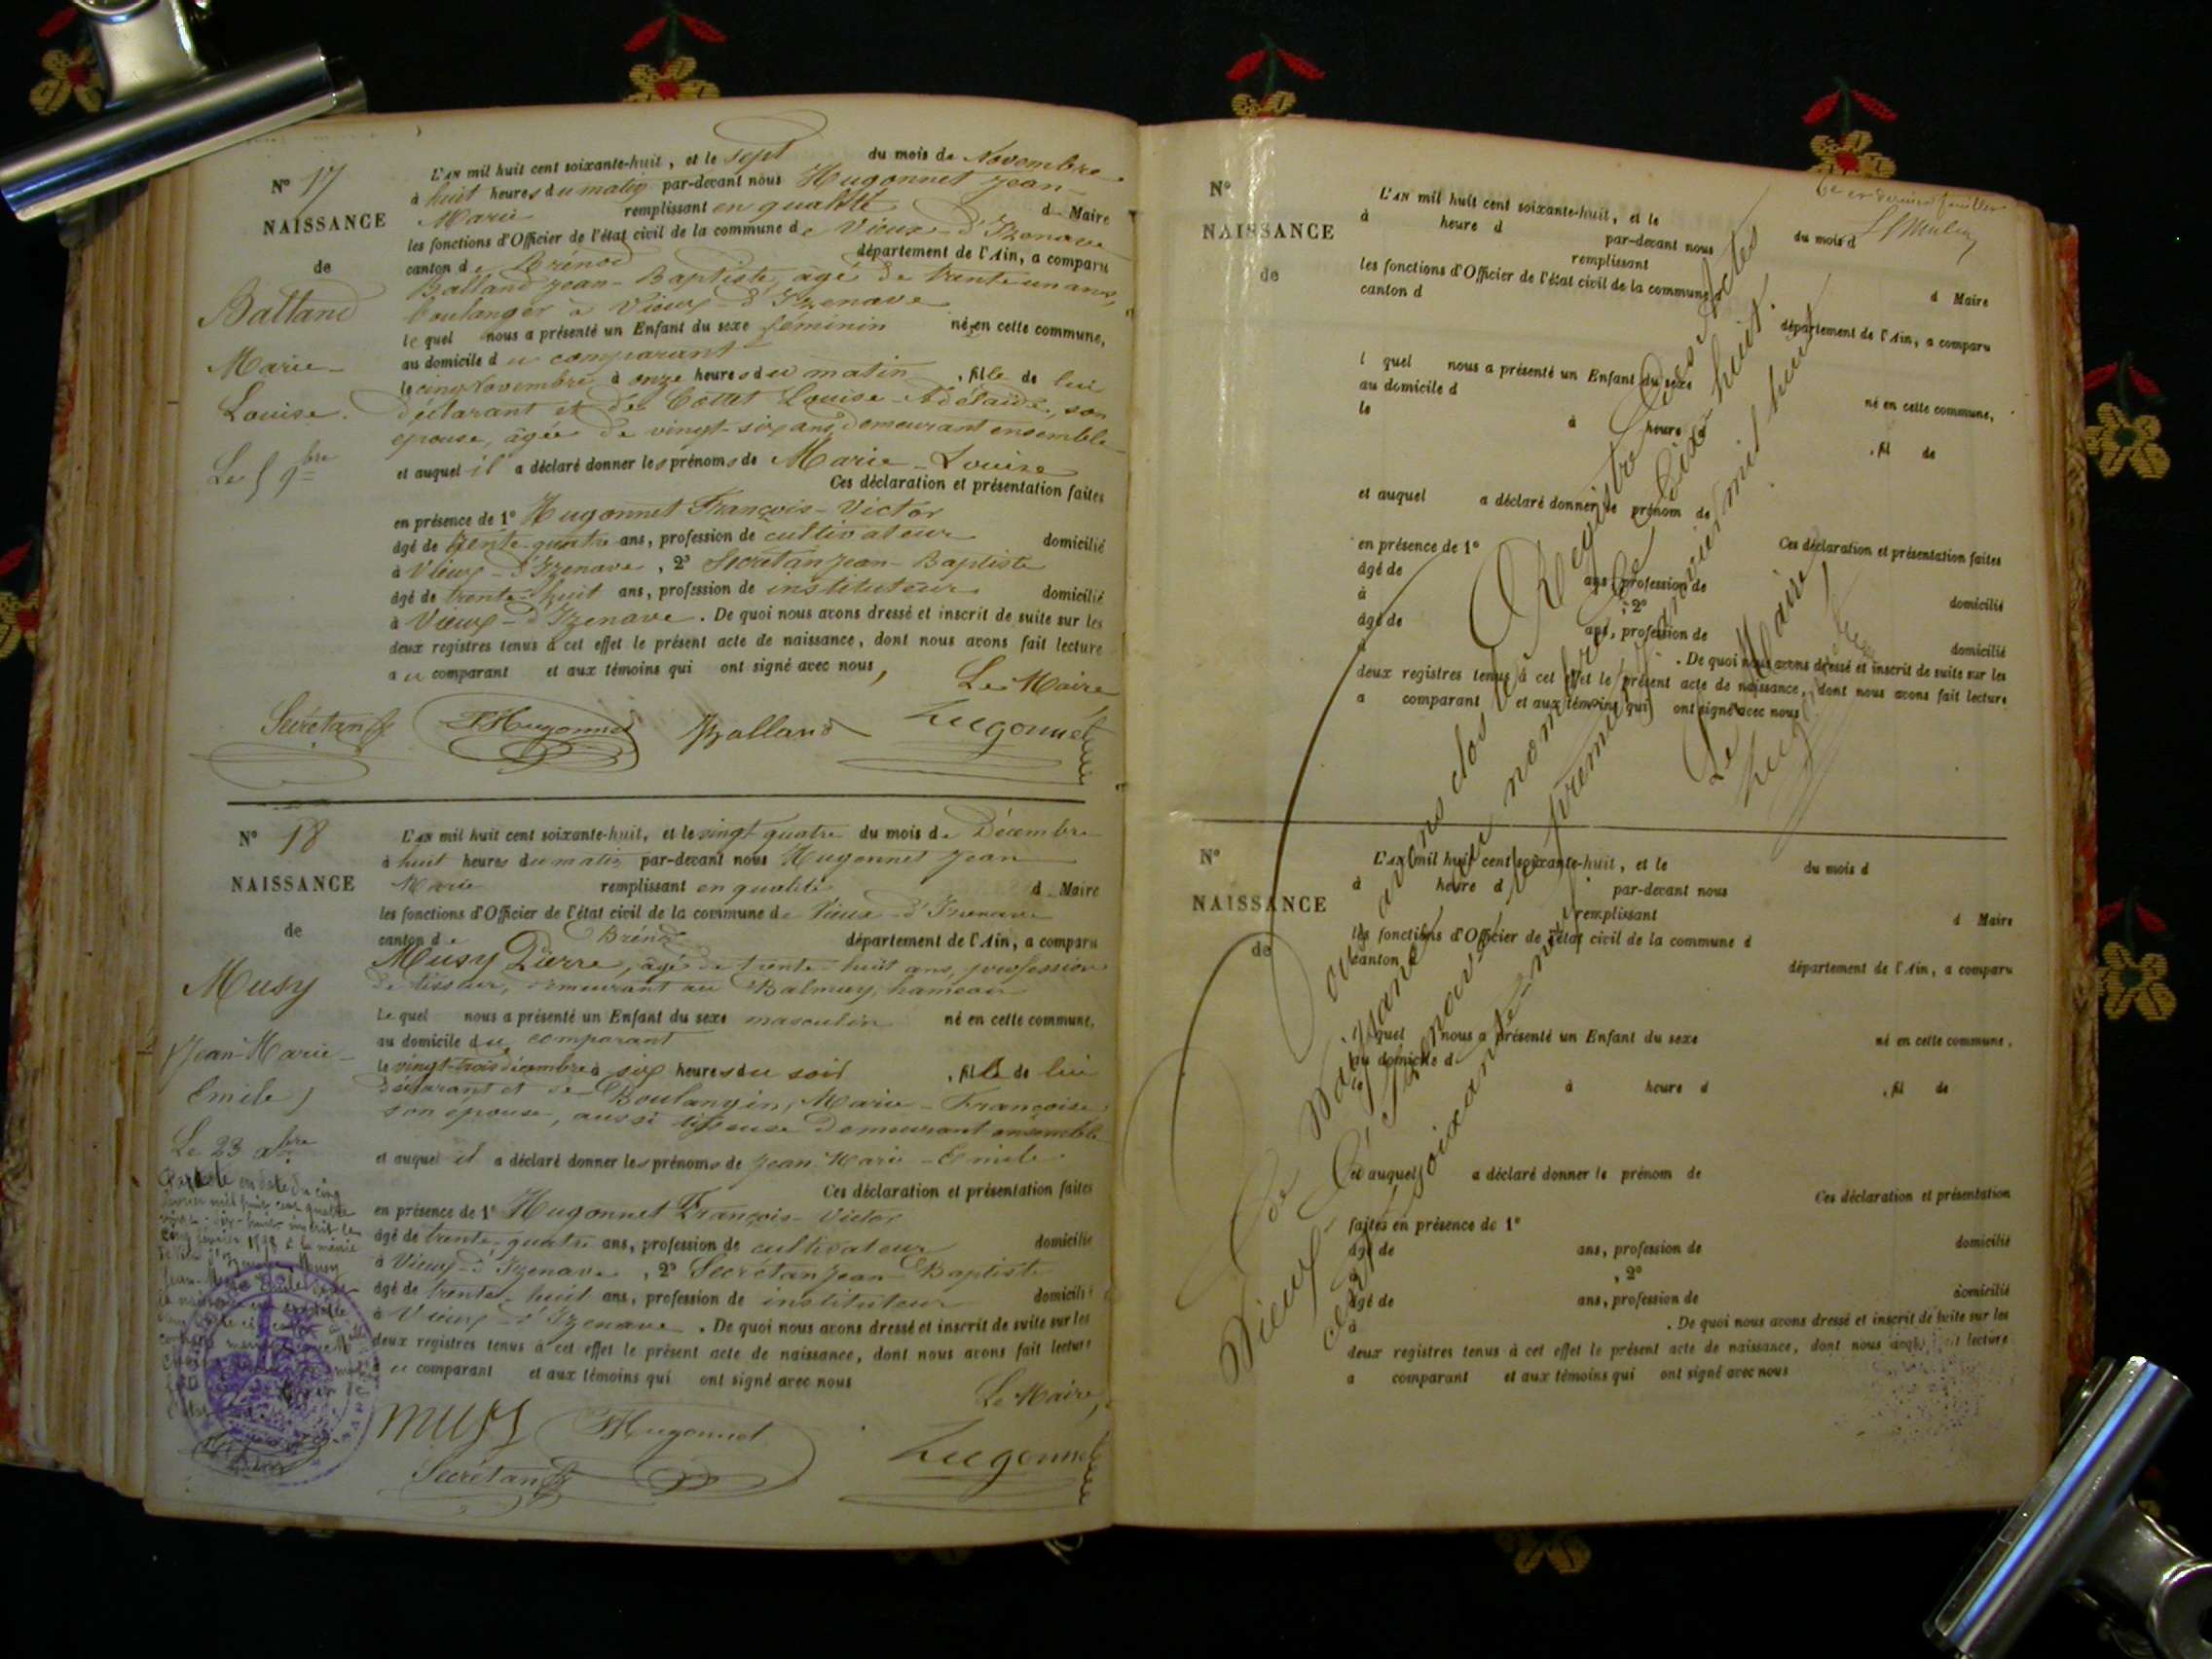 N° 17
NAISSANCE
de
Balland
Marie-
Louise.
Le 5 9bre
L'AN mil huit cent soixante-huit, et le sept du mois de Novembre
à huit heures du matin par-devant nous Hugonnet Jean-
Marie remplissant en qualité d Maire
les fonctions d'Officier de l'état civil de la commune de Vieux-d'Izenave
canton de Brénod département de l'Ain, a comparu
Balland Jean-Baptiste, âgé de trente un ans,
boulanger à Vieux-d'Izenave
le quel nous a présenté un Enfant du sexe féminin né en cette commune,
au domicile du comparant
le cinq Novembre à onze heures du matin, fille de lui
déclarant et de Cottet Louise-Adélaïde, son
épouse, âgée de vingt-six ans, demeurant ensemble
et auquel il a déclaré donner les prénoms de Marie-Louise
Ces déclaration et présentation faites
en présence de 1° Hugonnet François-Victor
âgé de trente-quatre ans, profession de cultivateur domicilié
à Vieux-d'Izenave, 2° Secrétan Jean-Baptiste
âgé de trente-huit ans, profession de instituteur domicilié
à Vieux-d'Izenave. De quoi nous avons dressé et inscrit de suite sur les
deux registres tenus à cet effet le présent acte de naissance, dont nous avons fait lecture
au comparant et aux témoins qui ont signé avec nous,
Le Maire
Secrétan FHugonnet Balland Hugonnet
N° 18
NAISSANCE
de
Musy
Jean-Marie-
Emile
Le 23 xbre
L'AN mil huit cent soixante-huit, et le vingt quatre du mois de Décembre
à huit heures du matin par-devant nous Hugonnet Jean
Marie remplissant en qualité d Maire
les fonctions d'Officier de l'état civil de la commune de Vieux-d'Izenave
canton de Brénod département de l'Ain, a comparu
Musy Pierre, âgé de trente-huit ans, profession
de tisseur, demeurant au Balmay, hameau
Le quel nous a présenté un Enfant du sexe masculin né en cette commune,
au domicile du comparant
le vingt-trois décembre à six heures du soir, fils de lui
déclarant et de Boulangin, Marie-Françoise
son épouse, aussi tisseuse demeurant ensemble
et auquel il a déclaré donner les prénoms de Jean Marie-Emile
Ces déclaration et présentation faites
en présence de 1° Hugonnet François-Victor
âgé de trente-quatre ans, profession de cultivateur domicilié
à Vieux-d'Izenave, 2° Secrétan Jean-Baptiste
âgé de trente-huit ans, profession de instituteur domicilié
à Vieux-d'Izenave. De quoi nous avons dressé et inscrit de suite sur les
deux registres tenus à cet effet le présent acte de naissance, dont nous avons fait lecture
au comparant et aux témoins qui ont signé avec nous
Le Maire,
Musy FHugonnet
Secrétan Hugonnet
Par acte en date du cinq
février mil huit cent quatre
vingt-dix-huit inscrit le
cinq février 1898 à la mairie
de Vieux d'Izenave, Musy
Jean-Marie Emile
6e et dernier feuillet
N°
NAISSANCE
de
L'AN mil huit cent soixante-huit, et le du mois d
à heure d par-devant nous
remplissant d Maire
les fonctions d'Officier de l'état civil de la commune d
canton d département de l'Ain, a comparu
l quel nous a présenté un Enfant du sexe né en cette commune,
au domicile d
le à heure d , fil de
et auquel a déclaré donner le prénom de
Ces déclaration et présentation faites
en présence de 1°
âgé de ans, profession de domicilié
à , 2°
âgé de ans, profession de domicilié
à . De quoi nous avons dressé et inscrit de suite sur les
deux registres tenus à cet effet le présent acte de naissance, dont nous avons fait lecture
a comparant et aux témoins qui ont signé avec nous
N°
NAISSANCE
de
L'AN mil huit cent soixante-huit, et le du mois d
à heure d par-devant nous
remplissant d Maire
les fonctions d'Officier de l'état civil de la commune d
canton d département de l'Ain, a comparu
l quel nous a présenté un Enfant du sexe né en cette commune,
au domicile d
le à heure d , fil de
et auquel a déclaré donner le prénom de
Ces déclaration et présentation
faites en présence de 1°
âgé de ans, profession de domicilié
à , 2°
âgé de ans, profession de domicilié
à . De quoi nous avons dressé et inscrit de suite sur les
deux registres tenus à cet effet le présent acte de naissance, dont nous avons fait lecture
a comparant et aux témoins qui ont signé avec nous
Nous avons clos le Registre des Actes
de Naissance au nombre de Dix-huit.
Vieux-d'Izenave le premier janvier mil huit
cent soixante-neuf.
Le Maire,
Hugonnet